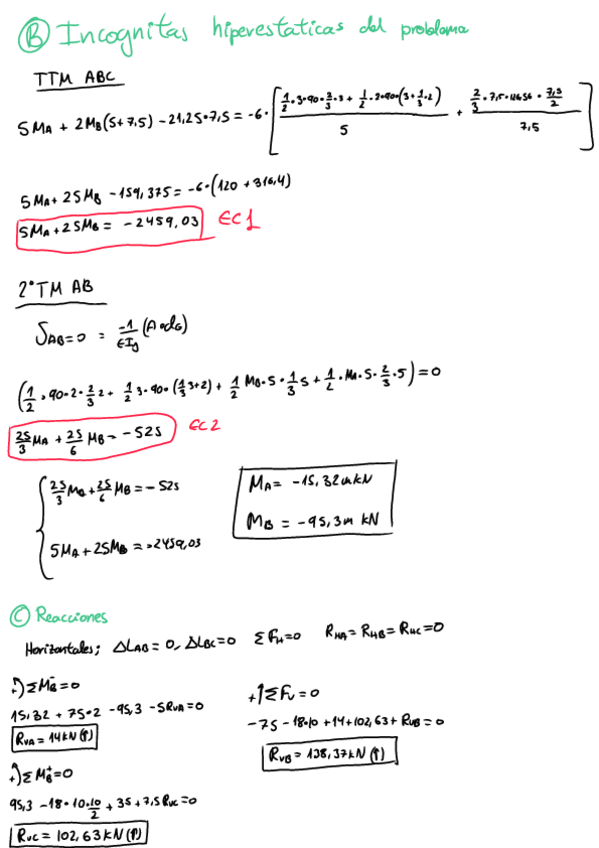 Ⓑ Incognitas hiperestaticas del problema
TTM ABC
5MA + 2MB(5+7,5) - 21,25·7,5 = -6·[ (1/2·3·90·2/3·3 + 1/2·2·90·(3+1/3·2))/5 + (2/3·7,5·126,56·7,5/2)/7,5 ]
5MA + 25MB - 159,375 = -6·(120 + 316,4)
5MA + 25MB = -2459,03 EC1
2°TM AB
δAB=0 = -1/EIg (A·dG)
(1/2·90·2·2/3 2 + 1/2 3·90·(1/3 3+2) + 1/2 MB·5·1/3 5 + 1/2·MA·5·2/3·5) = 0
25/3 MA + 25/6 MB = -525 EC2
{ 25/3 MA + 25/6 MB = -525
5MA + 25MB = -2459,03
MA = -15,32 m kN
MB = -95,3 m kN
Ⓒ Reacciones
Horizontales; ΔLAB = 0, ΔLBC = 0 ΣFH = 0 RHA = RHB = RHC = 0
+↷) ΣMB⁻ = 0
15,32 + 75·2 - 95,3 - 5RVA = 0
RVA = 14 kN (↑)
+↷) ΣMB⁺ = 0
95,3 - 18·10·10/2 + 35 + 7,5 RVC = 0
RVC = 102,63 kN (↑)
+↑ΣFV = 0
-75 - 18·10 + 14 + 102,63 + RVB = 0
RVB = 138,37 kN (↑)